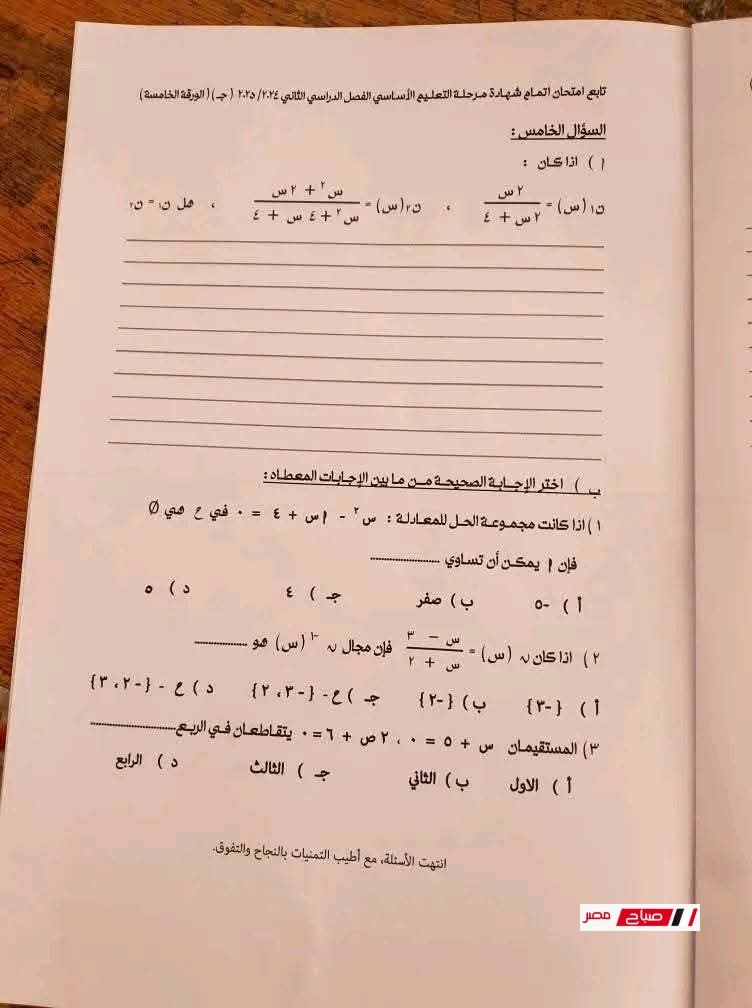 تابع امتحان اتمام شهادة مرحلة التعليم الأساسي الفصل الدراسي الثاني ٢٠٢٤/ ٢٠٢٥ ( جـ ) ( الورقة الخامسة )
السؤال الخامس :
ا ) اذا كان :
ن١ (س) = ٢ س / ٢ س + ٤ ، ن٢ (س) = س٢ + ٢ س / س٢ + ٤ س + ٤ ، هل ن١ = ن٢
ب ) اختر الإجابة الصحيحة من ما بين الإجابات المعطاه :
١ ) اذا كانت مجموعة الحل للمعادلة : س٢ - ا س + ٤ = ٠ في ح هي Ø
فإن ا يمكن أن تساوي ........................
أ ) -٥ ب ) صفر جـ ) ٤ د ) ٥
٢ ) اذا كان ن (س) = س – ٣ / س + ٢ فإن مجال ن-١ (س) هو ..................
أ ) {-٣} ب ) {-٢} جـ ) ح - {-٣ ، ٢} د ) ح - {-٢ ، ٣}
٣ ) المستقيمان س + ٥ = ٠ ، ٢ ص + ٦ = ٠ يتقاطعان في الربع ............................
أ ) الاول ب ) الثاني جـ ) الثالث د ) الرابع
انتهت الأسئلة، مع أطيب التمنيات بالنجاح والتفوق.
صباح مصر